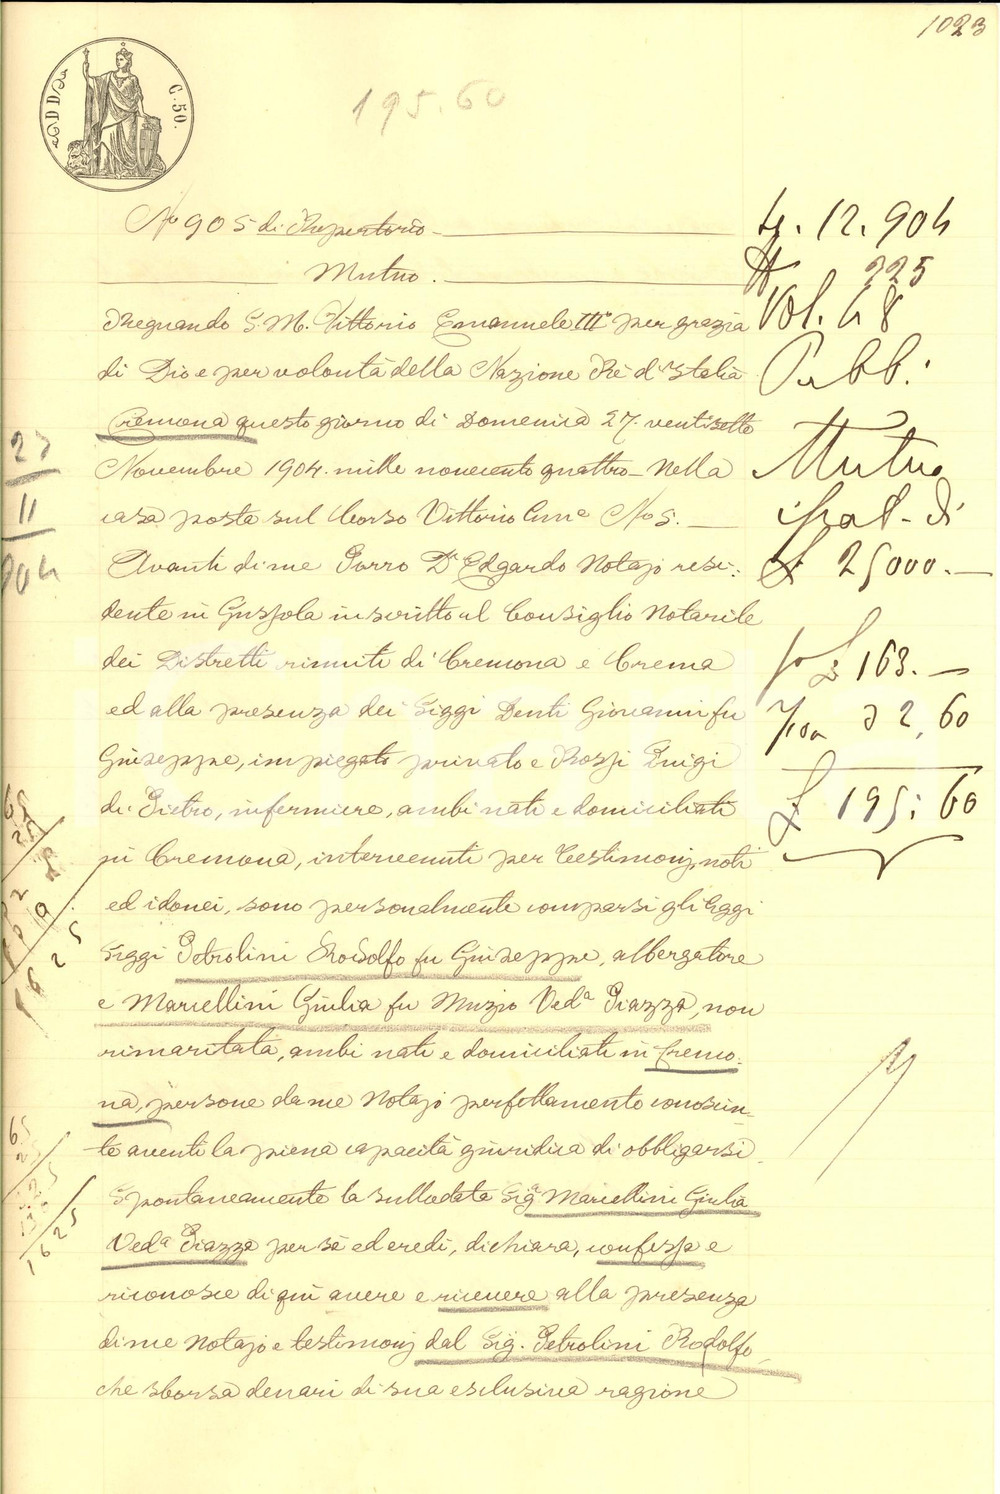 1023
C. 50.
195.60
No 905 di Repertorio
Mutuo.
Regnando S. M. Vittorio Emanuele III° per grazia
di Dio e per volontà della Nazione Rè d'Italia
Cremona questo giorno di Domenica 27. ventisette
Novembre 1904. mille novecento quattro - Nella
casa posta sul Corso Vittorio Eme No 5.
Avanti di me Porro Dr Edgardo Notajo resi-
dente in Gussola inscritto al Consiglio Notarile
dei Distretti riuniti di Cremona e Crema
ed alla presenza dei Siggi Denti Giovanni fu
Giuseppe, impiegato privato e Rossi Luigi
di Pietro, infermiere, ambi nati e domiciliati
in Cremona, intervenuti per testimonj, noti
ed idonei, sono personalmente comparsi gli
Siggi Petrolini Rodolfo fu Giuseppe, albergatore
e Marcellini Giulia fu Muzio Veda Piazza, non
rimaritata, ambi nati e domiciliati in Cremo-
na, persone da me Notajo perfettamente conosciu-
te aventi la piena capacità giuridica di obbligarsi.
Spontaneamente la sullodata Siga Marcellini Giulia
Veda Piazza per sè ed eredi, dichiara, confessa e
riconosce di quì avere e ricevere alla presenza
di me Notajo e testimonj dal Sig. Petrolini Rodolfo
che sborsa denari di sua esclusiva ragione
12. 904
225
Vol. 48
Pubb:
Mutuo
di
£ 25000.-
£ 163.-
32,60
£ 195:60
27
11
904